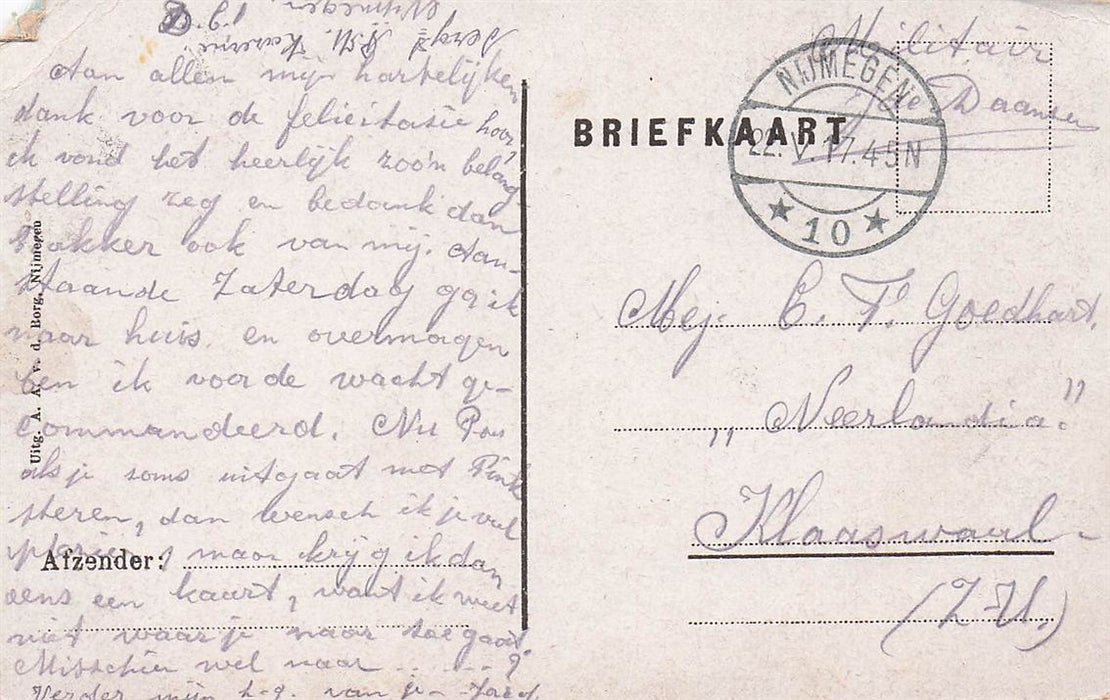 Nijmegen
Serg't P.M. Kazerne
Aan allem mijn hartelijken
dank voor de felicitatie hoor
ik vond het heerlijk zoo'n belang
stelling zeg en bedank dan
Bakker ook van mij. Aan-
staande Zaterdag ga ik
naar huis en overmorgen
ben ik voor de wacht ge-
commandeerd. Nu Pou
als je soms uitgaat met Pink
steren, dan wensch ik je veel
plezier, maar krijg ik dan
eens een kaart, want ik weet
niet waar je naar toe gaat.
Misschien wel naar ........?
Verder mijn h-g. van je
Uitg. A. A. v. d. Borg, Nijmegen
Afzender:
BRIEFKAART
NIJMEGEN
22.V.17.4-5N
10
Militair
Daansen
Mej. C. F. Goedhart.
„Neerlandia"
Klaaswaal-
(Z-H.)